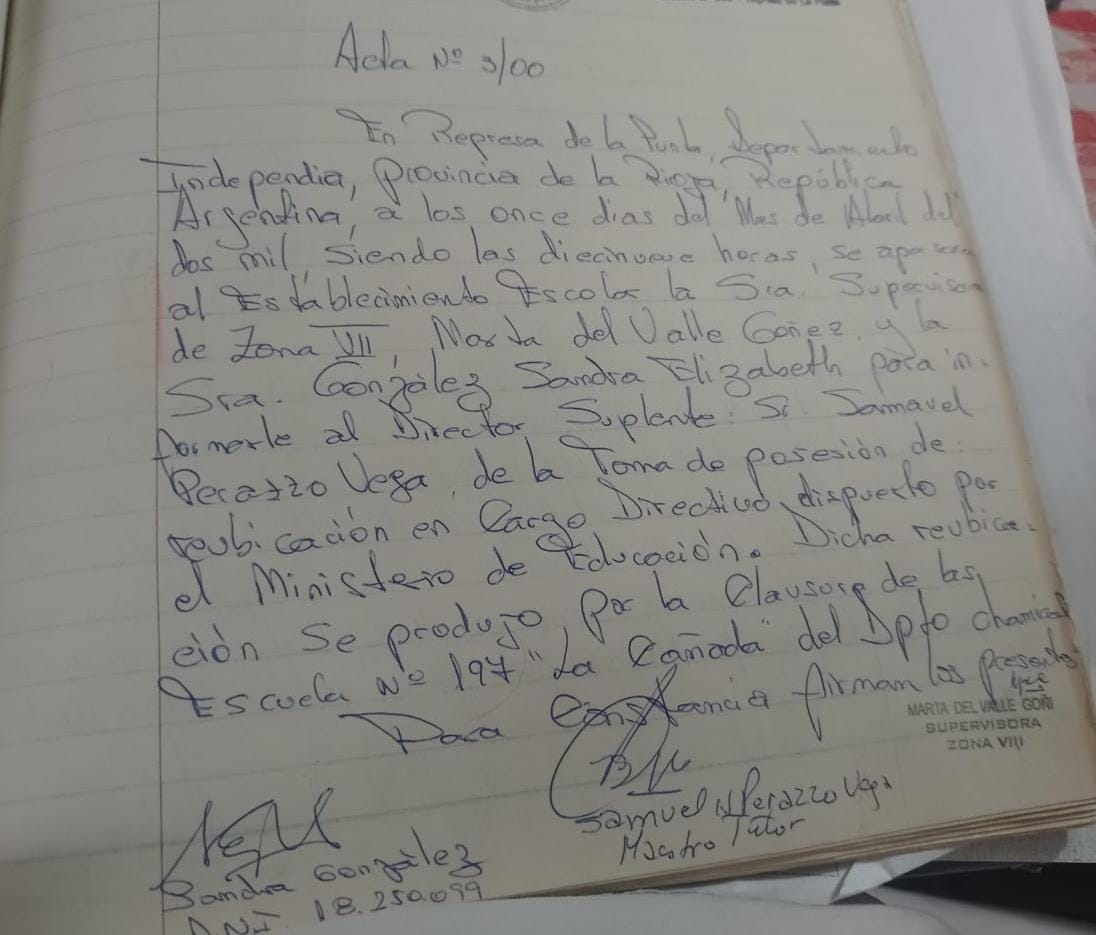 Acta Nº 3/00
En Represa de la Punta, Departamento
Independia, Provincia de la Rioja, República
Argentina, a los once dias del Mes de Abril del
dos mil, Siendo las diecinueve horas, se
al Establecimiento Escolar la Sra. Supervisora
de Zona VII, Marta del Valle Goñez y la
Sra. González Sandra Elizabeth para in-
formarle al Director Suplente: Sr. Samavel
Perazzo Vega, de la Toma de posesión de
reubicación en Cargo Directivo dispuesto por
el Ministerio de Educación. Dicha reubica-
ción Se produjo, por la Clausura de las
Escuela Nº 197 "La Cañada" del Dpto Chamical
Para Constancia firman los presente
que
MARTA DEL VALLE GOÑI
SUPERVISORA
ZONA VIII
Samuel Perazzo Vega
Maestro Tutor
Sandra González
D.N.I. 18.250.099